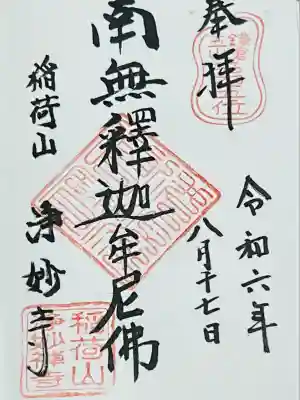 奉拝
令和六年
八月十七日
南無釋迦牟尼佛
稲荷山
浄妙寺
稲荷山
浄妙禅寺